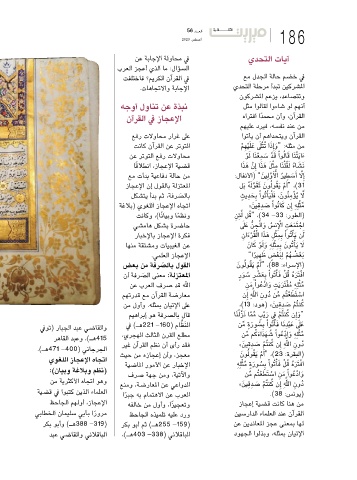 العدد 56
أغسطس 2021
186
آيات التحدي
في خضم حالة الجدل مع
المشركين تبدأ مرحلة التحدي
وتتصاعد، يزعم المشركون
أنهم لو شاءوا لقالوا مثل
القرآن، وأن محمدًا افتراه
من عند نفسه، فيرد عليهم
القرآن ويتحداهم أن يأتوا
من مثله: "وَإِذَا تُتْلَى عَلَيْهِمْ
ءَايَٰتُنَا قَالُواْ قَدْ سَمِعْنَا لَوْ
نَشَآءُ لَقُلْنَا مِثْلَ هَٰذَآ إِنْ هَٰذَآ
إِلَّآ أَسَٰطِيرُ ٱلْأَوَّلِينَ" (الأنفال:
31)، "أَمْ يَقُولُونَ تَقَوَّلَهُۥ بَل
لَّا يُؤْمِنُونَ، فَلْيَأْتُواْ بِحَدِيثٍ
مِّثْلِهِۦٓ إِن كَانُواْ صَٰدِقِينَ"
(الطور: 33- 34)، "قُل لَّئِنِ
ٱجْتَمَعَتِ ٱلْإِنسُ وَٱلْجِنُّ عَلَىٰٓ
أَن يَأْتُواْ بِمِثْلِ هَٰذَا ٱلْقُرْءَانِ
لَا يَأْتُونَ بِمِثْلِهِۦ وَلَوْ كَانَ
بَعْضُهُمْ لِبَعْضٍ ظَهِيرًا"
(الإسراء: 88)، "أَمْ يَقُولُونَ
ٱفْتَرَىٰهُ قُلْ فَأْتُواْ بِعَشْرِ سُوَرٍ
مِّثْلِهِۦ مُفْتَرَيَٰتٍ وَٱدْعُواْ مَنِ
ٱسْتَطَعْتُم مِّن دُونِ ٱللَّهِ إِن
كُنتُمْ صَٰدِقِينَ" (هود: 13)،
"وَإِن كُنتُمْ فِى رَيْبٍ مِّمَّا نَزَّلْنَا
عَلَىٰ عَبْدِنَا فَأْتُواْ بِسُورَةٍ مِّن
مِّثْلِهِۦ وَٱدْعُواْ شُهَدَآءَكُم مِّن
دُونِ ٱللَّهِ إِن كُنتُمْ صَٰدِقِينَ"
(البقرة: 23)، "أَمْ يَقُولُونَ
ٱفْتَرَىٰهُ قُلْ فَأْتُواْ بِسُورَةٍ مِّثْلِهِۦ
وَٱدْعُواْ مَنِ ٱسْتَطَعْتُم مِّن
دُونِ ٱللَّهِ إِن كُنتُمْ صَٰدِقِينَ"
(يونس: 38).
من هنا كانت قضية إعجاز
القرآن عند العلماء الدارسين
لها بمعنى عجز المعاندين عن
الإتيان بمثله، وبذلوا الجهود
في محاولة الإجابة عن
السؤال: ما الذي أعجز العرب
في القرآن الكريم؟ فاختلفت
الإجابة والاتجاهات.
نبذة عن تناول أوجه
الإعجاز في القرآن
على غرار محاولات رفع
التوتر عن القرآن كانت
محاولات رفع التوتر عن
قضية الإعجاز، انطلاقًا
من حالة دفاعية بدأت مع
المعتزلة بالقول إن الإعجاز
بالصرفة، ثم بدأ يتشكل
اتجاه الإعجاز اللغوي (بلاغة
ونظمًا وبيانًا)، وكانت
حاضرة بشكل هامشي
فكرة الإعجاز بالإخبار
عن الغيبيات ومشتقة منها
الإعجاز العلمي.
القول بالصَّرفة من بعض
المعتزلة: معنى الصَّرفة أن
الله قد صرف العرب عن
معارضة القرآن مع قدرتهم
على الإتيان بمثله، وأول من
قال بالصرفة هو إبراهيم
النظَّام (160- 221هـ) في
مطلع القرن الثالث الهجري،
فقد رأى أن نظم القرآن غير
معجز، وأن إعجازه من حيث
الإخبار عن الأمور الماضية
والآتية، ومن جهة صرف
الدواعي عن المعارضة، ومنع
العرب عن الاهتمام به جبرًا
وتعجيزًا، وأول من خالفه
ورد عليه تلميذه الجاحظ
(159- 255هـ) ثم أبو بكر
الباقلاني (338- 403هـ)،
والقاضي عبد الجبار (توفي
415هـ)، وعبد القاهر
الجرجاني (400- 471هـ).
اتجاه الإعجاز اللغوي
(نظم وبلاغة وبيان):
وهو اتجاه الأكثرية من
العلماء الذين كتبوا في قضية
الإعجاز، أولهم الجاحظ
مرورًا بأبي سليمان الخطابي
(319- 388هـ) وأبو بكر
الباقلاني والقاضي عبد